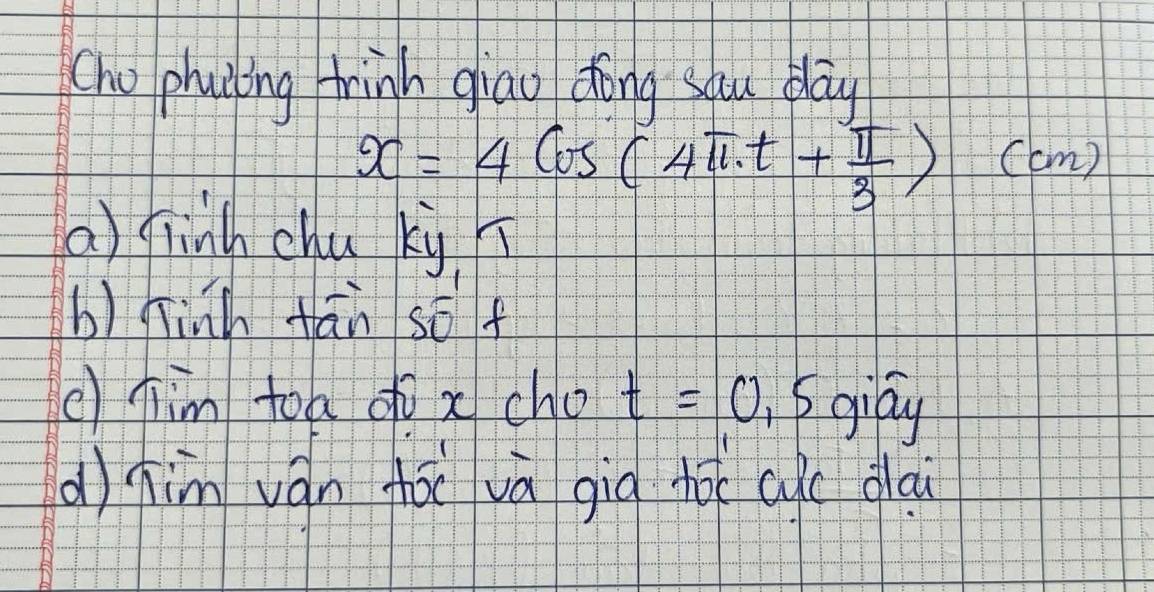 Cho phương trình giao động sau đây
x = 4 Cos ( 4π.t + π/3 ) (cm)
a) Tính chu kỳ T
b) Tính tần số f
c) Tìm toạ độ x cho t = 0,5 giây
d) Tìm vận tốc và gia tốc cực đại